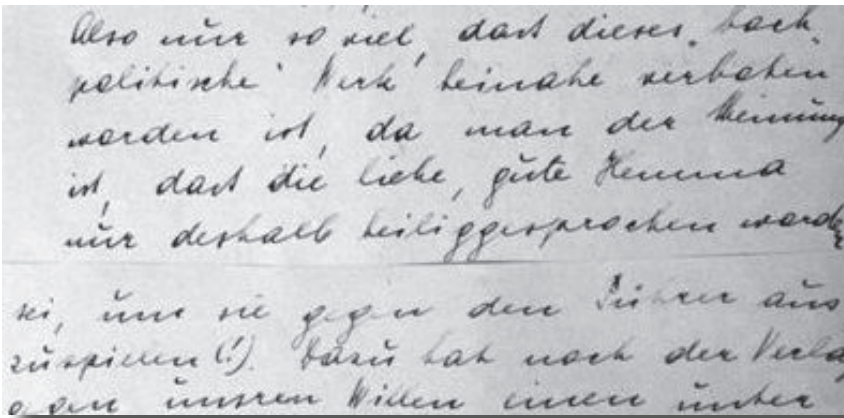 Also nur so viel, dass dieses "hoch-
politische" Werk beinahe verboten
worden ist, da man der Meinung
ist, dass die liebe, gute Hemma
nur deshalb heiliggesprochen worden
sei, um sie gegen den Führer aus
zuspielen (!). Dazu hat noch der Verlag
gegen unsren Willen einen unter